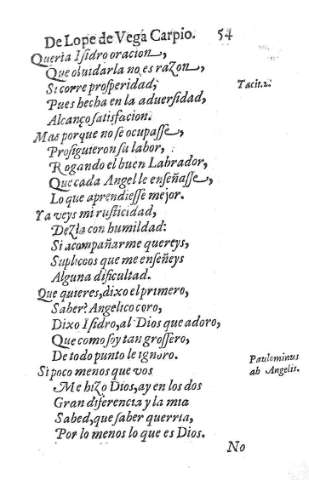 De Lope de Vega Carpio. 54
Queria Isidro oracion,
Que oluidarla no es razon,
Si corre prosperidad;
Tacita.
Pues hecha en la aduersidad,
Alcanço satisfacion.
Mas porque no se ocupasse,
Prosiguieron su labor,
Rogando el buen Labrador,
Que cada Angel le enseñasse,
Lo que aprendiesse mejor.
Ya veys mi rusticidad,
Dezia con humildad:
Si acompañarme quereys,
Suplicoos que me enseñeys
Alguna dificultad.
Que quieres, dixo el primero,
Saber? Angelico coro,
Dixo Isidro, al Dios que adoro,
Que como soy tan grossero,
De todo punto le ignoro.
Si poco menos que vos
Paulominus
ab Angelis.
Me hizo Dios, ay en los dos
Gran diferencia y la mia
Sabed, que saber querria,
Por lo menos lo que es Dios.
No